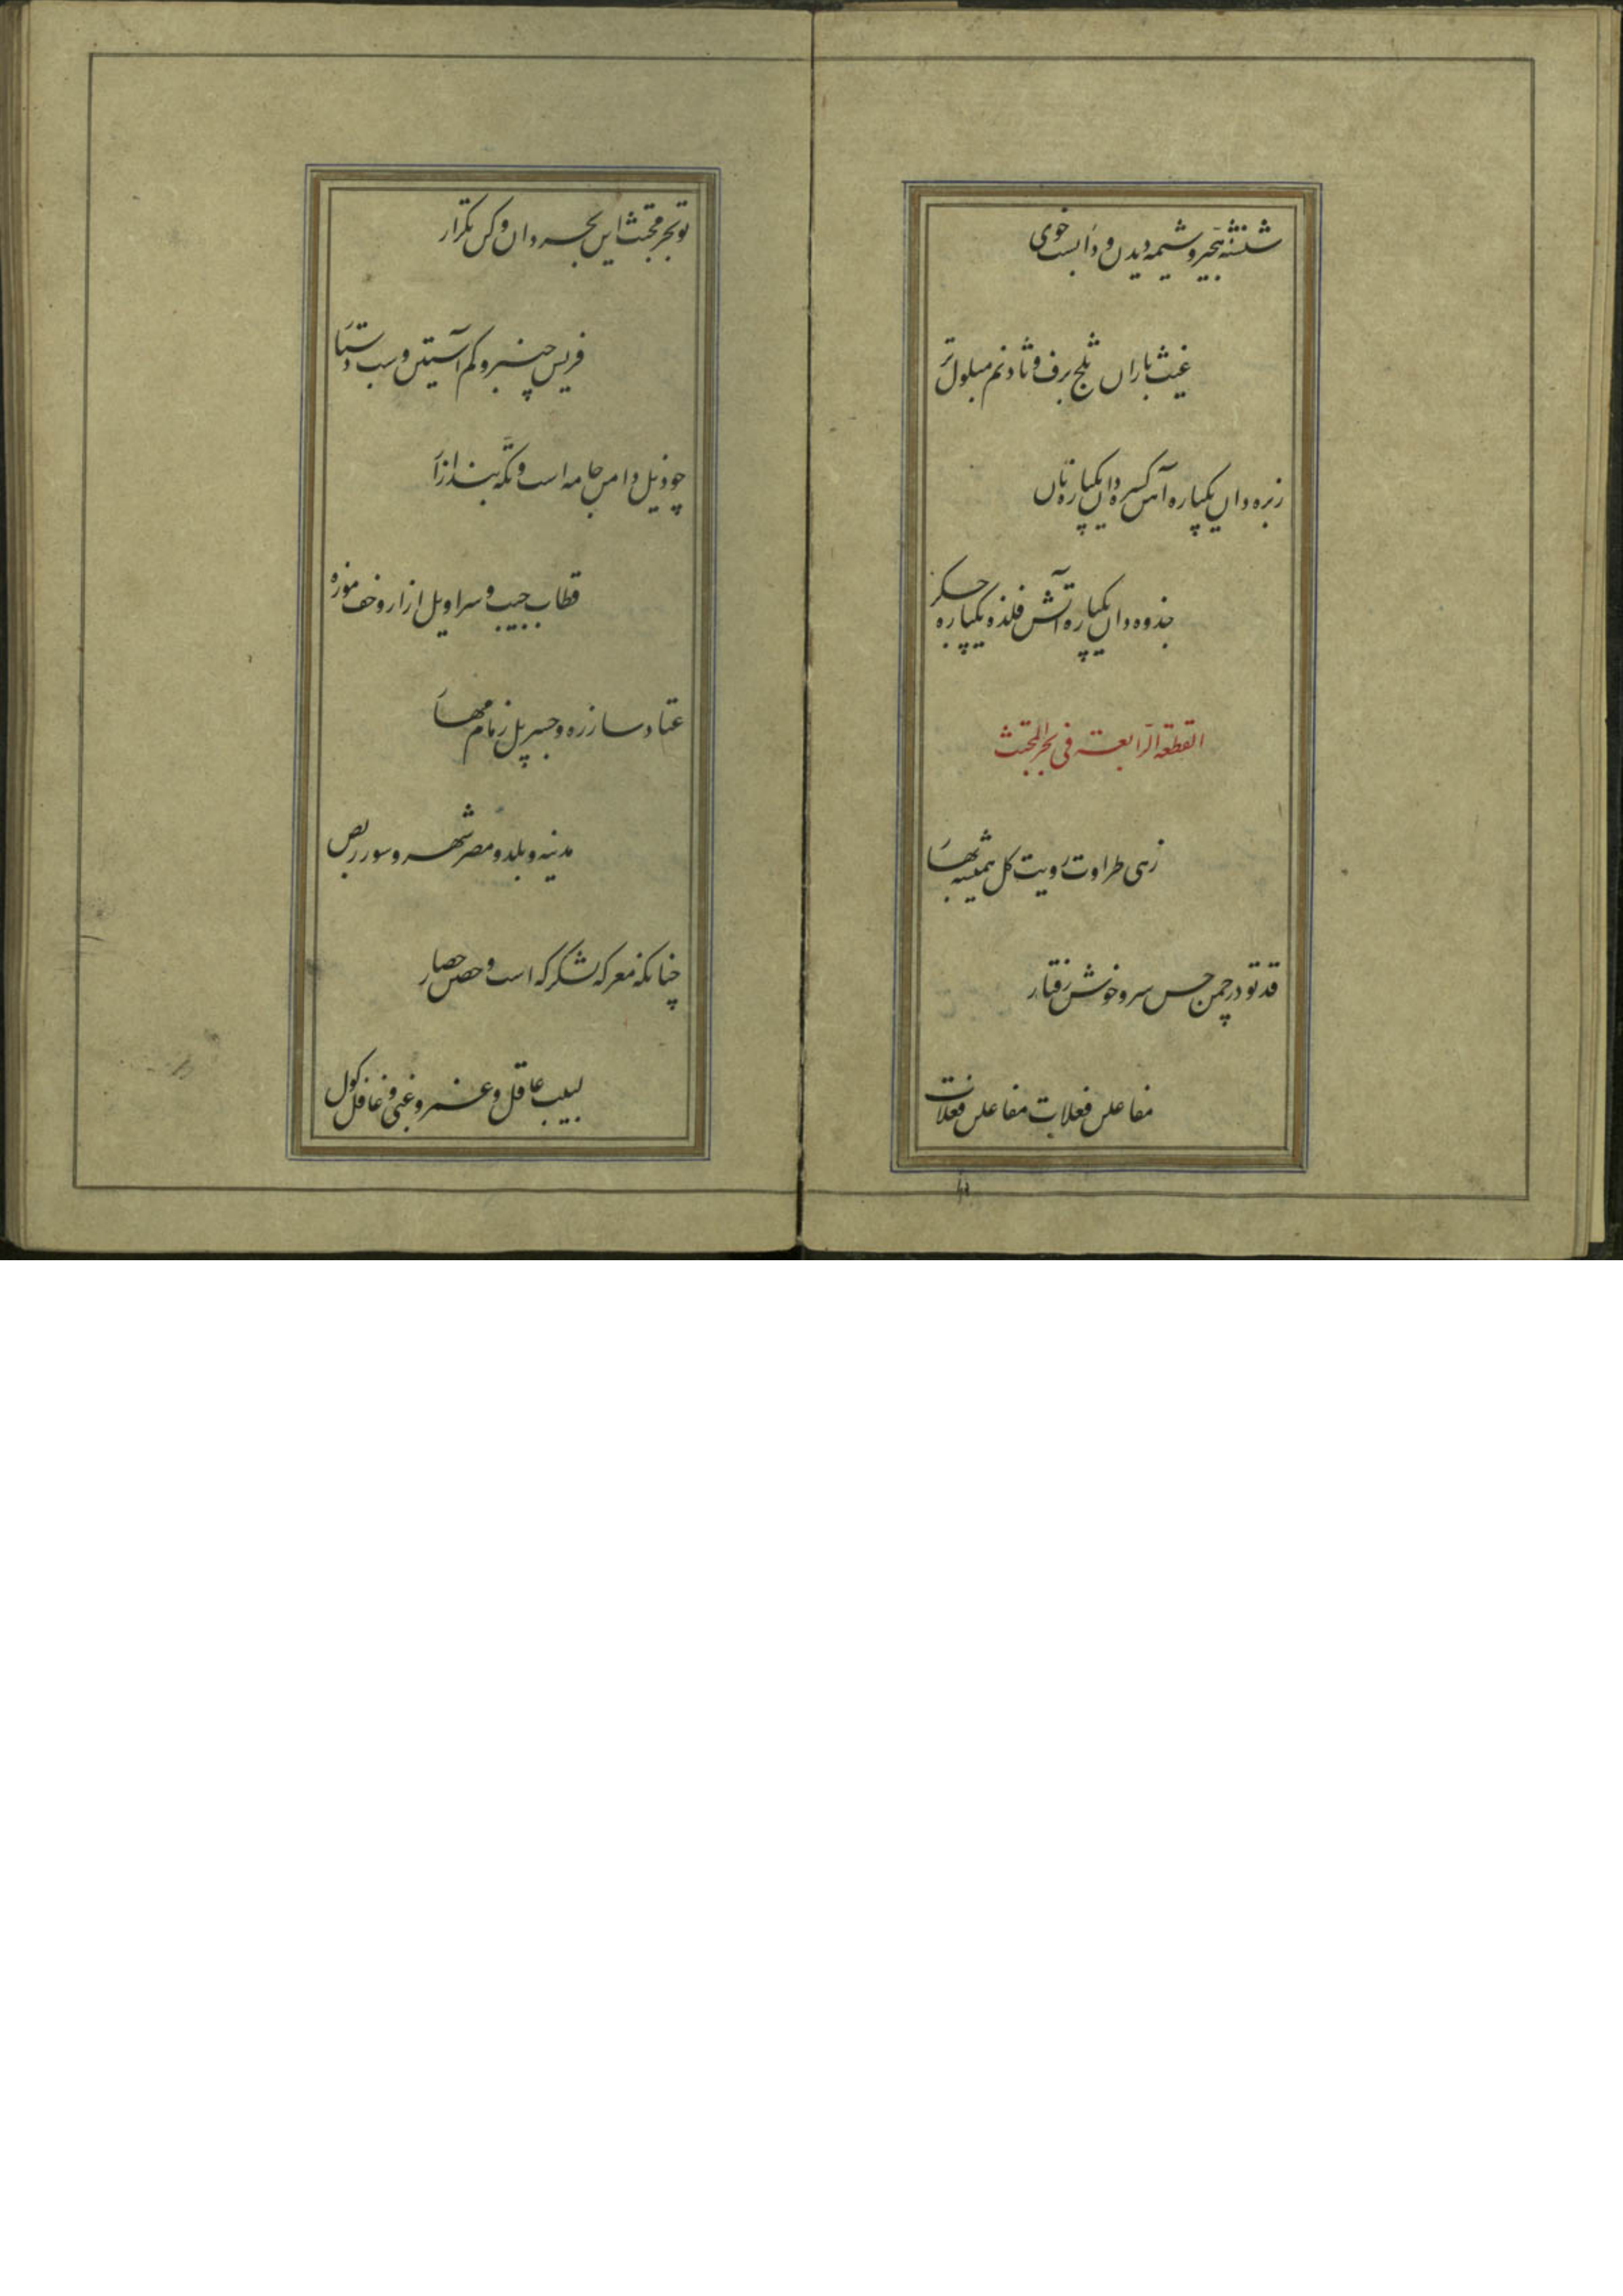 شنشنه هجیر و شیمه دیدن و داب است خوی
غیث باران ثلج برف و ثاد نم مبلول تر
زبره دان یکپاره آهن کسره دان یکپاره نان
جذوه دان یکپاره آتش فلذه یکپاره جگر
القطعة الرابعة فی بحر المجتث
زهی طراوت رویت گل همیشه بهار
قد تو در چمن حسن سرو خوش رفتار
مفاعلن فعلات مفاعلن فعلات
تو بحر مجتث این بحر دان و کن تکرار
فریس چنبر و کم آستین و سب دستار
چو ذیل دامن جامه است و تکه بند ازار
قطاب جیب و سراویل ازار و خف موزه
عتاد ساز زره و جسر پل زمام مهار
مدینه و بلد و مصر شهر و سور ربض
چنانکه معرکه لشکرگه است و حصن حصار
لبیب عاقل و غمر و غبی و غافل گول